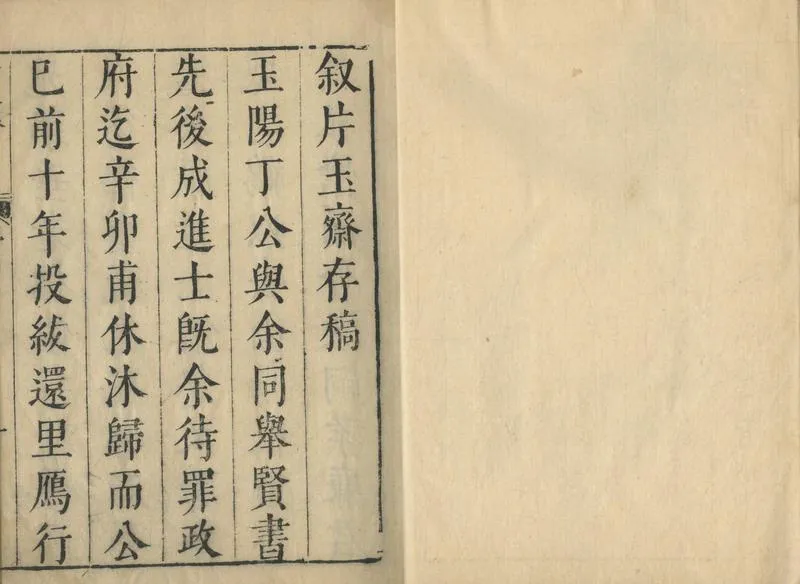 叙片玉齋存稿
玉陽丁公與余同舉賢書
先後成進士旣余待罪政
府迄辛卯甫休沐歸而公
已前十年投紱還里鴈行